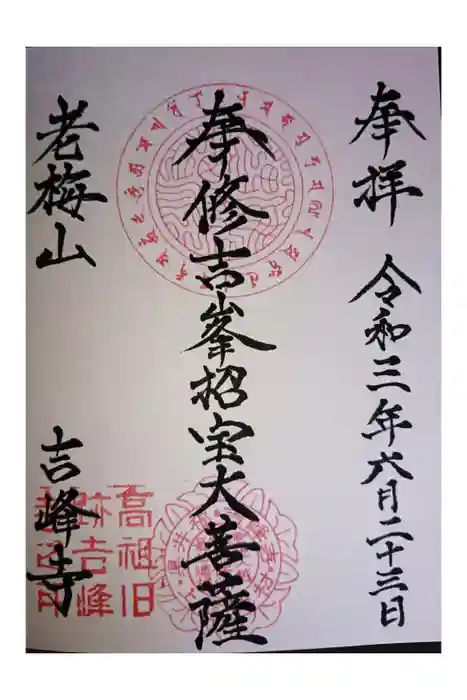 奉拝 令和三年六月二十三日
奉修吉峯招宝大菩薩
老梅山 吉峰寺
高祖旧
跡吉峰